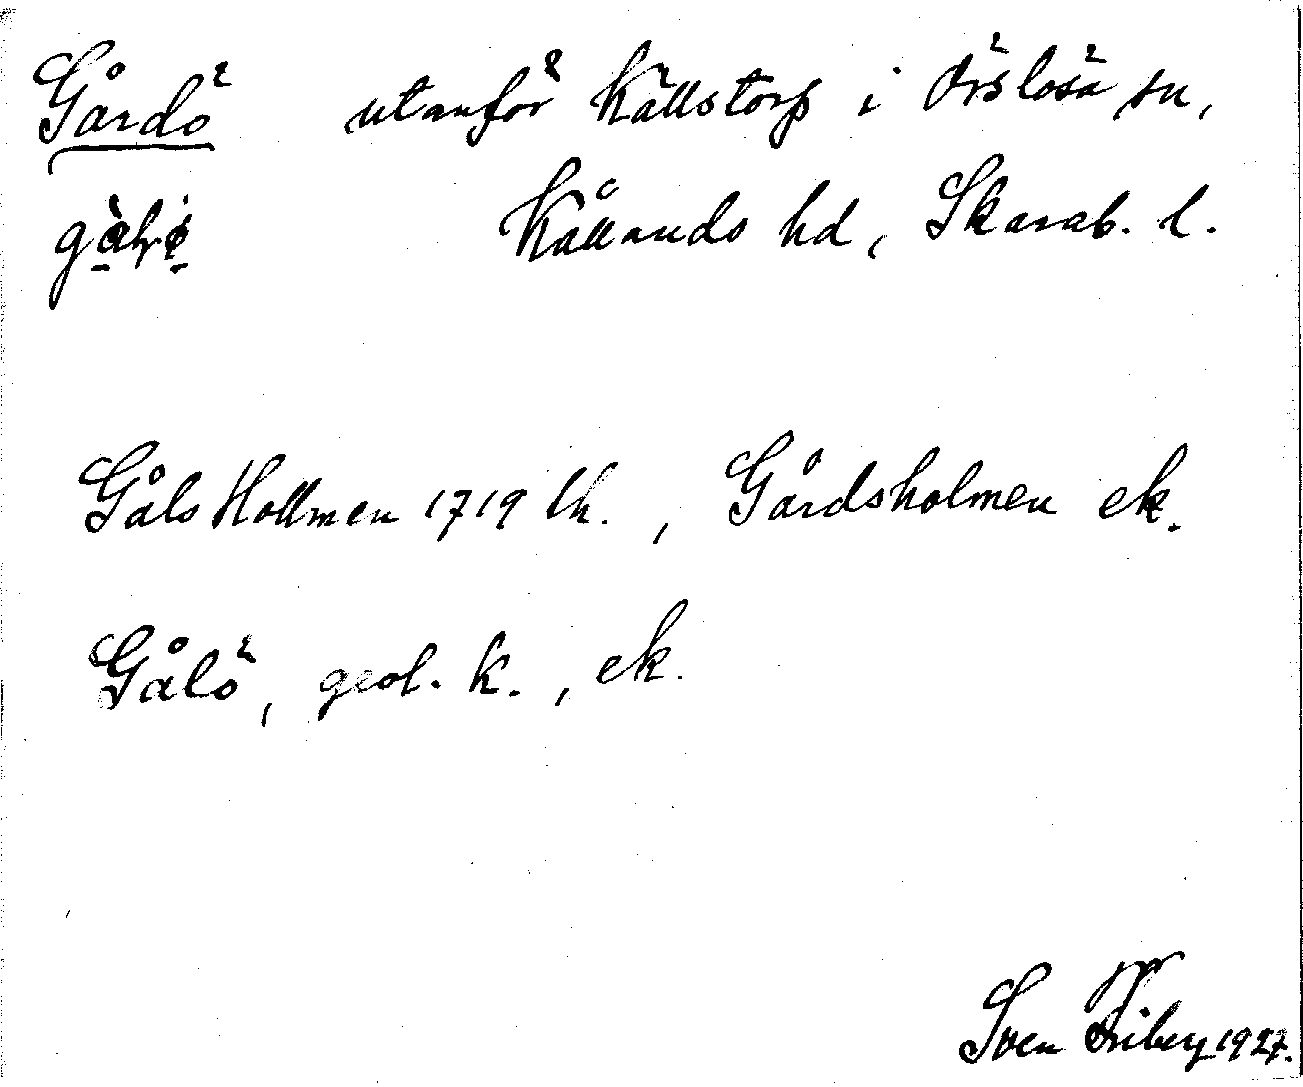 Gårdö utanför Källstorp i Örslösa sn,
Kållands hd, Skarab. l.
Gåls Hollmen 1719 lh., Gårdsholmen ek.
Gålö, geol. k., ek.
Sven Friberg 1927.